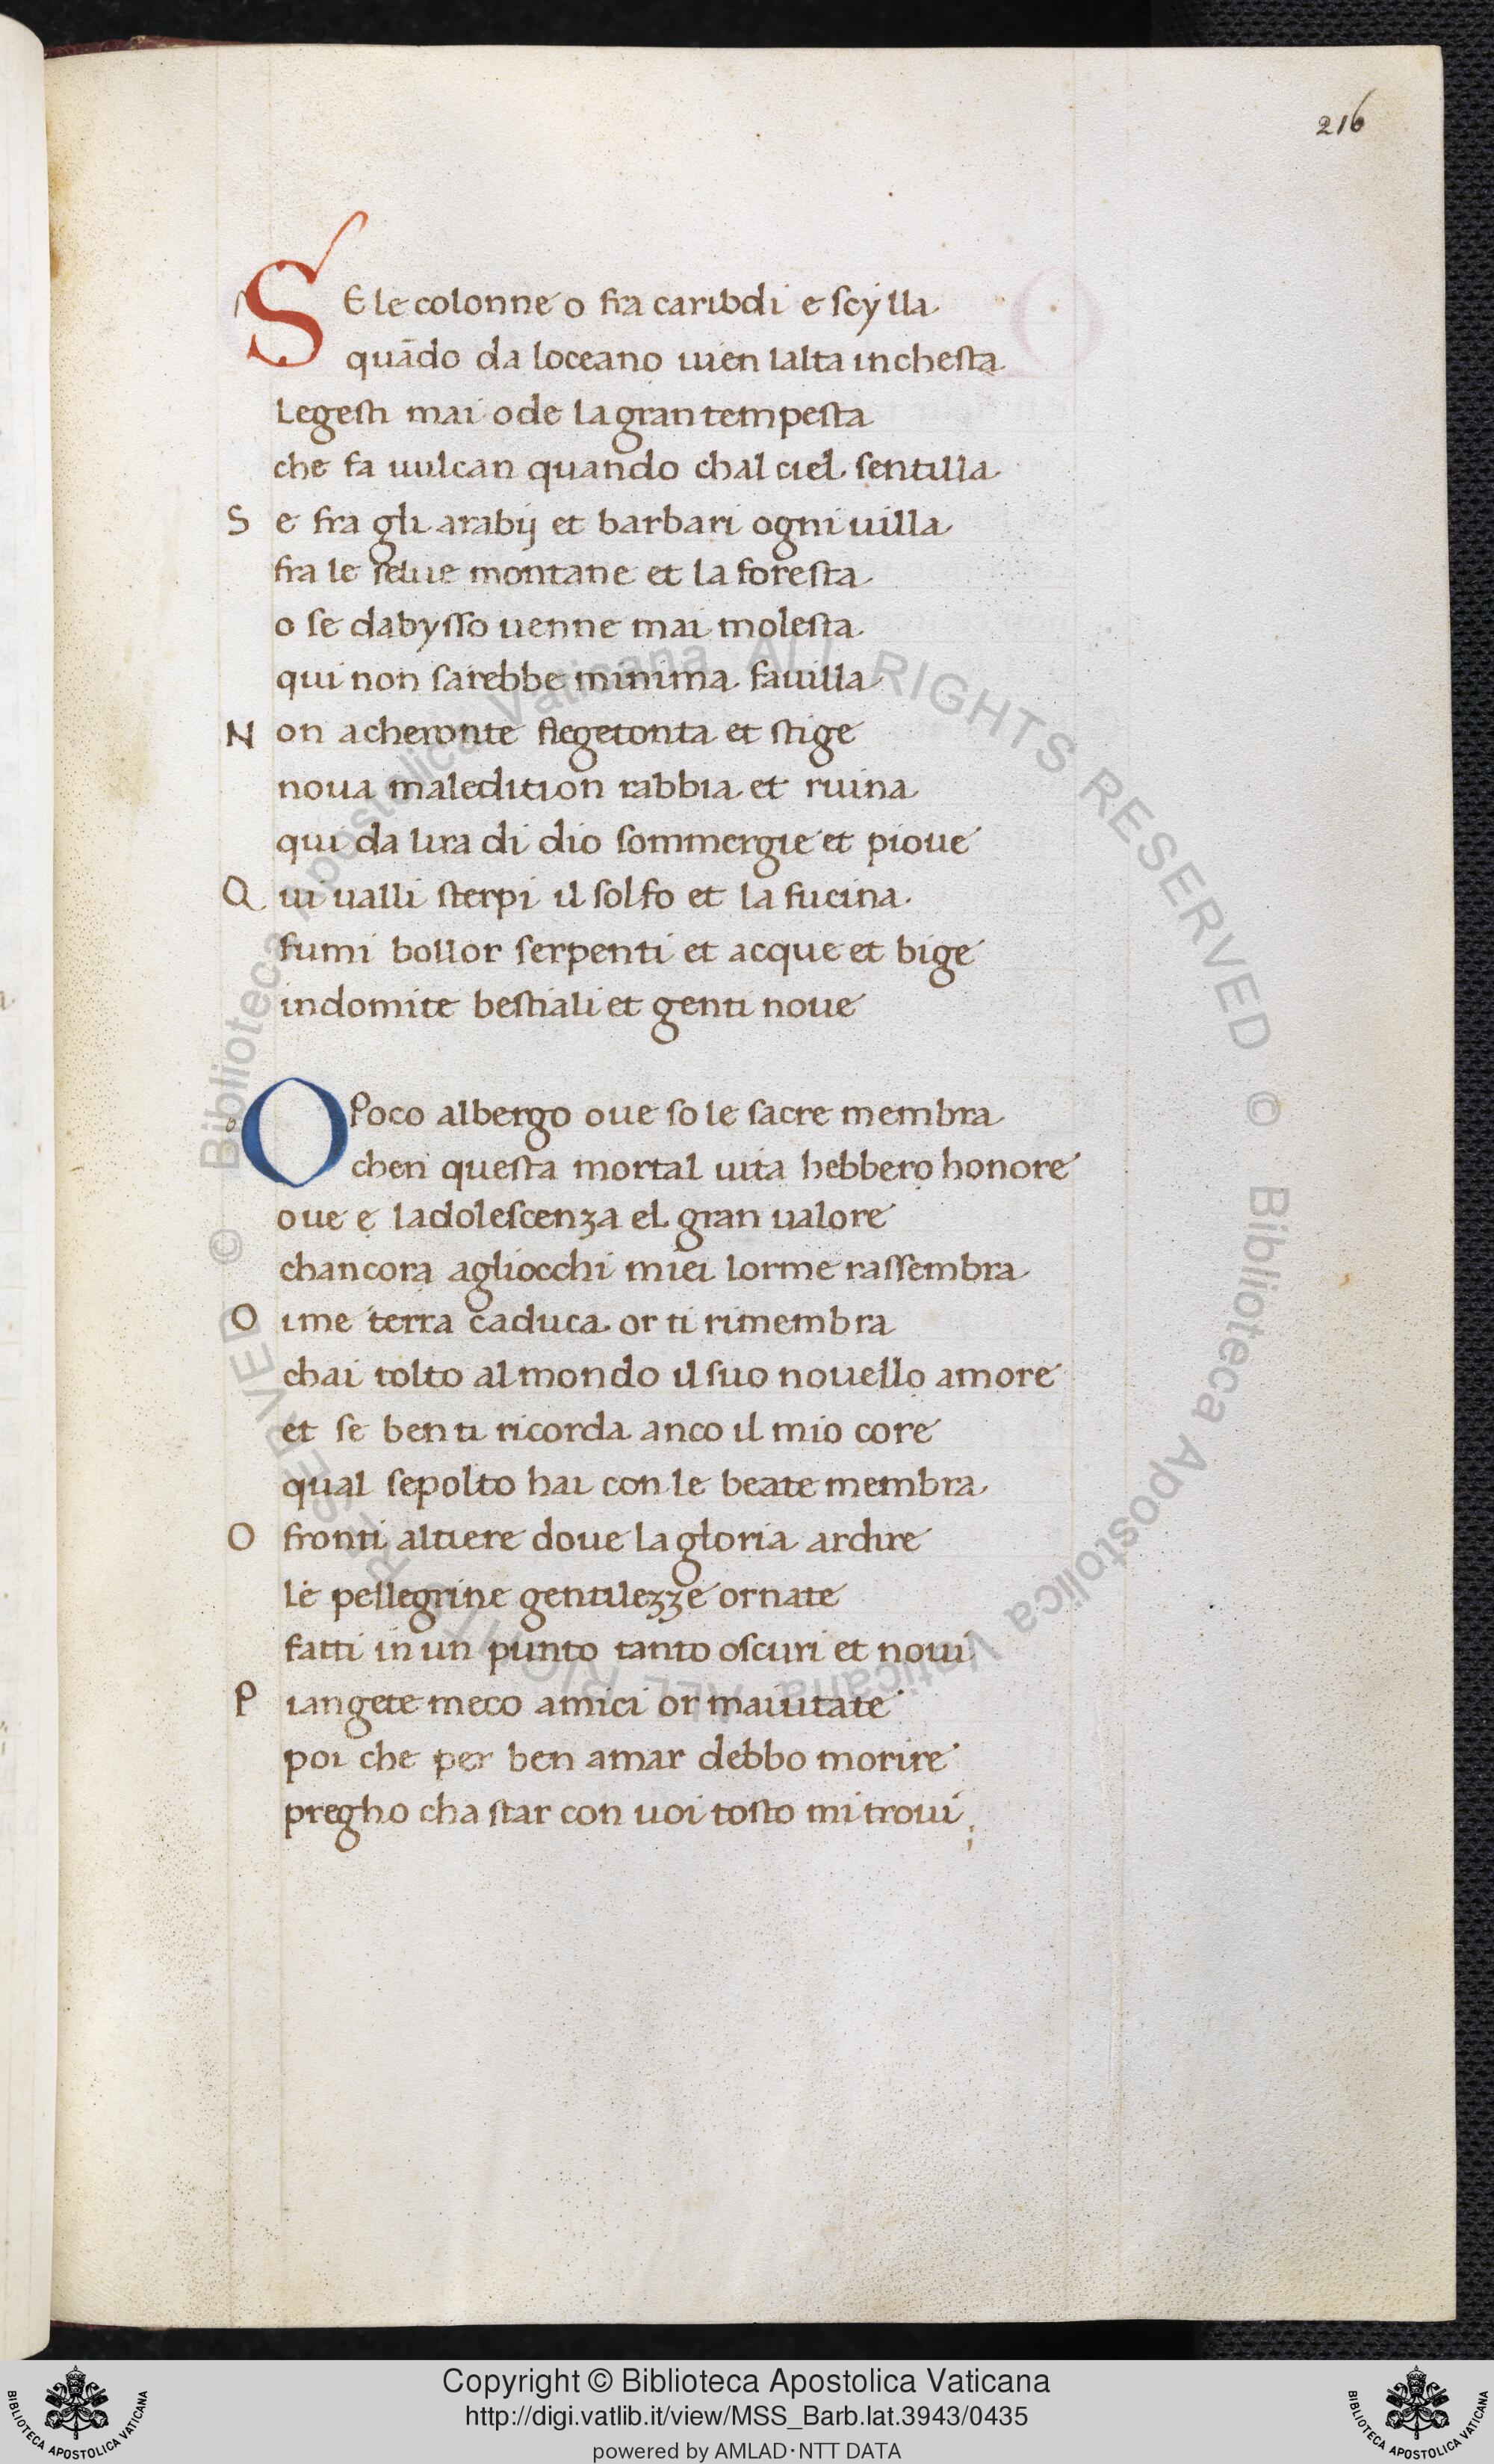 216
SE le colonne o fra caribdi e scylla
quãdo da loceano uien lalta inchesta
Legesti mai o de la gran tempesta
che fa uulcan quando chal ciel sentilla
S e fra gli arabij et barbari ogni uilla
fra le selue montane et la foresta
o se dabysso uenne mai molesta
qui non sarebbe minima fauilla
N on acheronte flegetonta et stige
noua maledition rabbia et ruina
qui da lira di dio sommergie et pioue
Q ui ualli sterpi il solfo et la fucina.
fumi bollor serpenti et acque et bige
indomite bestiali et genti noue
O Poco albergo oue so le sacre membra
chen questa mortal uita hebbero honore
oue e ladolescenza el gran ualore
chancora agliocchi miei lorme rassembra
O ime terra caduca or ti rimembra
chai tolto al mondo il suo nouello amore
et se ben ti ricorda anco il mio core
qual sepolto hai con le beate membra
O fronti altiere doue la gloria ardire
le pellegrine gentilezze ornate
fatti in un punto tanto oscuri et noui
P iangete meco amici or maiutate
poi che per ben amar debbo morire
pregho cha star con uoi tosto mi troui;
© Biblioteca Apostolica Vaticana ALL RIGHTS RESERVED © Biblioteca Apostolica Vaticana ALL RIGHTS RESERVED
Copyright © Biblioteca Apostolica Vaticana
http://digi.vatlib.it/view/MSS_Barb.lat.3943/0435
powered by AMLAD·NTT DATA
BIBLIOTECA APOSTOLICA VATICANA
BIBLIOTECA APOSTOLICA VATICANA